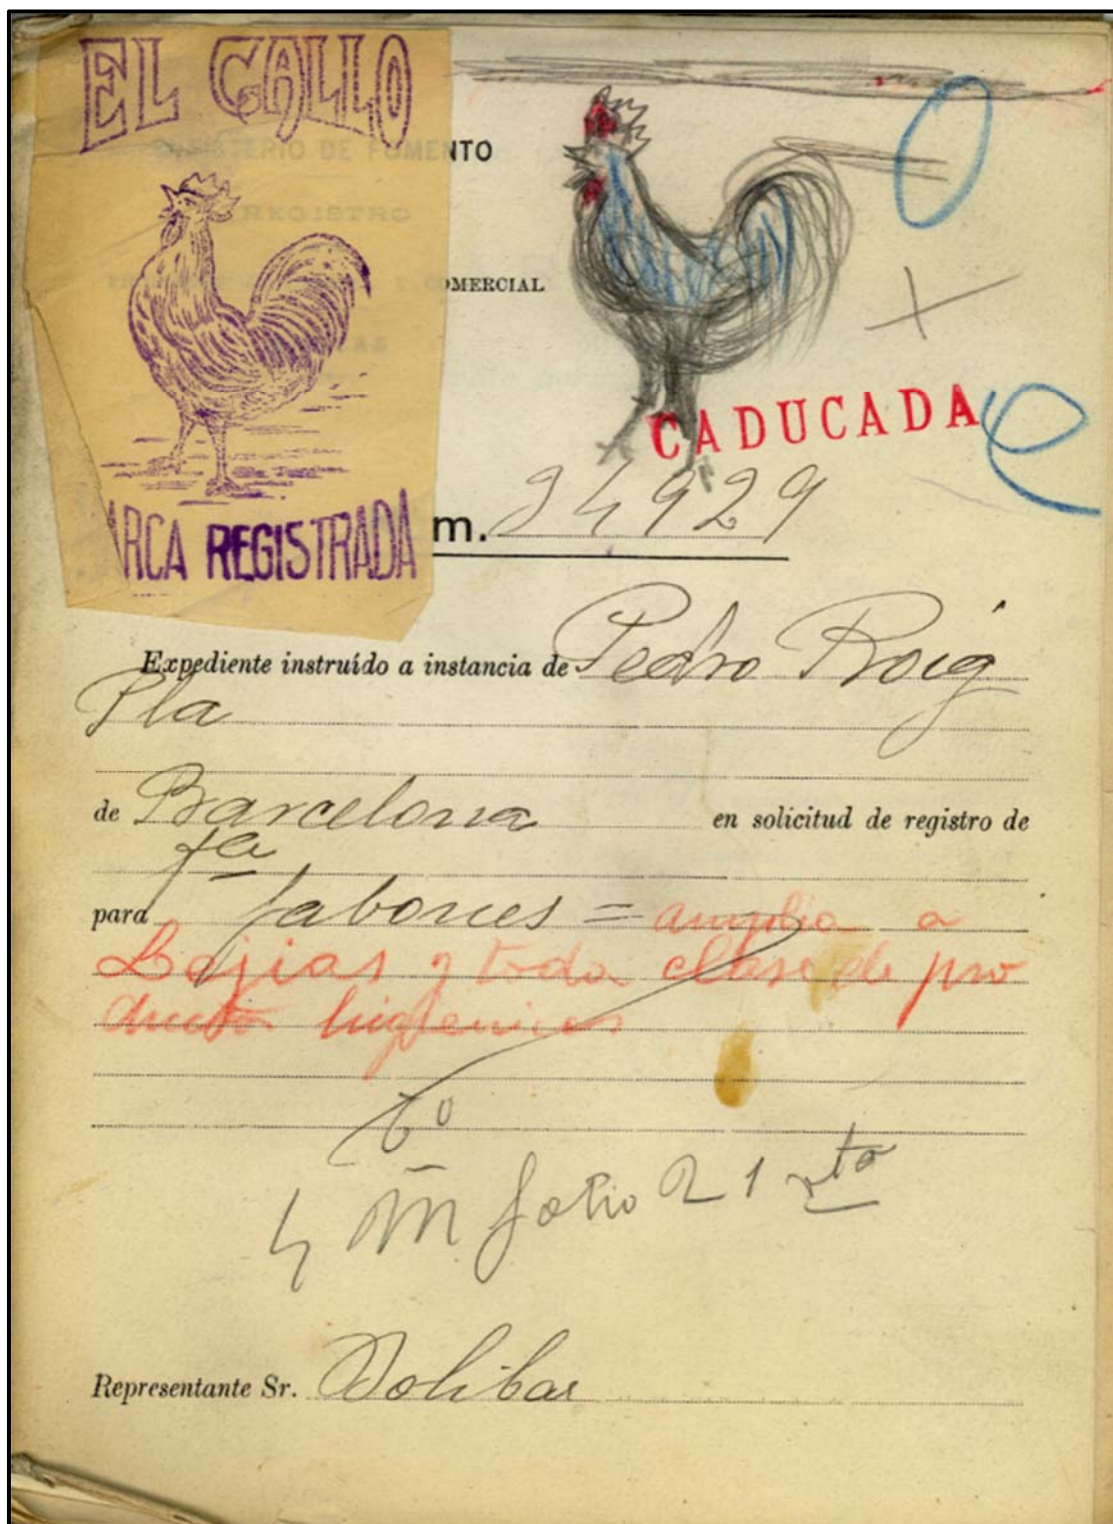 EL GALLO
MINISTERIO DE FOMENTO
REGISTRO
Y COMERCIAL
CADUCADA
ARCA REGISTRADA
m. 34929
Expediente instruído a instancia de Pedro Roig
Pla
de Barcelona en solicitud de registro de
fca
para Jabones = amplia a
Lejias y toda clase de pro
ductos higienicos
4 M folio 21 vto
Representante Sr. Bolibar